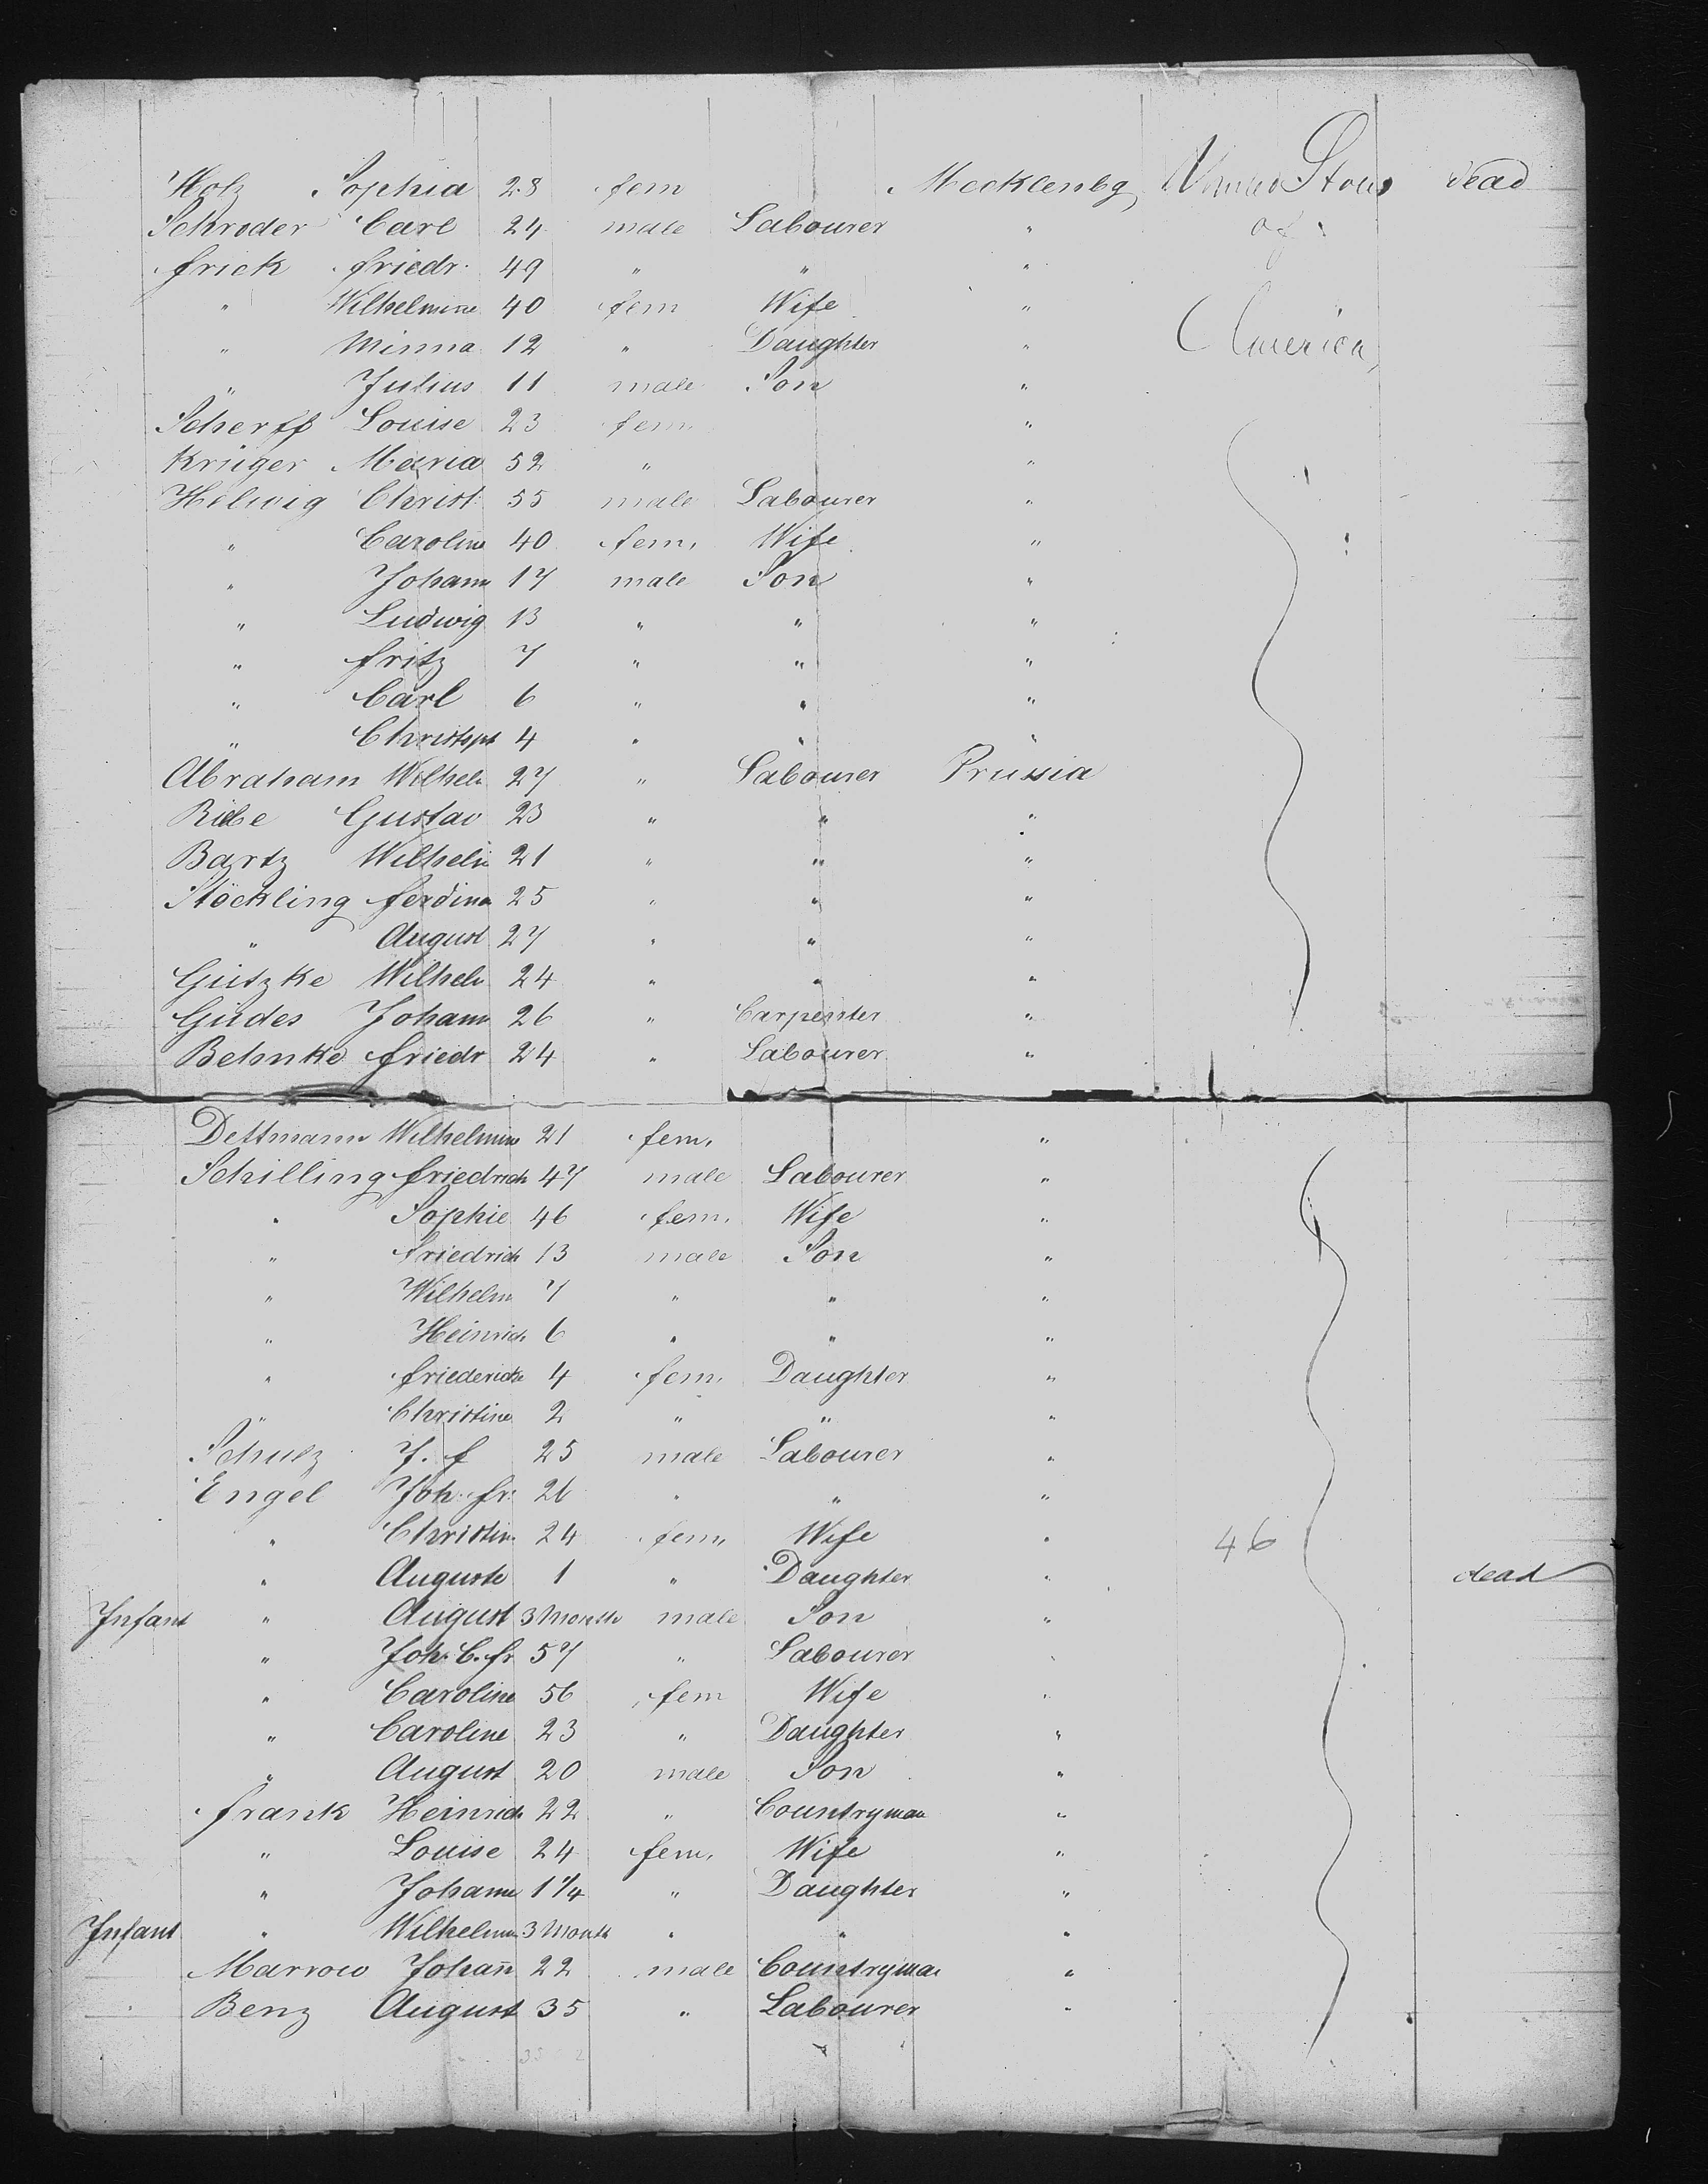 Holz Sophia 28 fem Mecklenbg United States dead
Schroder Carl 24 male Labourer " of
Frick Friedr. 49 " " "
" Wilhelmine 40 fem Wife "
" Minna 12 " Daughter " America,
" Julius 11 male Son "
Scherff Louise 23 fem. "
Krüger Maria 52 " "
Helwig Christ. 55 male Labourer "
" Caroline 40 fem. Wife "
" Johann 17 male Son "
" Ludwig 13 " " "
" Fritz 7 " " "
" Carl 6 " " "
" Christoph 4 " " "
Abraham Wilhelm 27 " Labourer Prussia
Gustav 23 " " "
Bartz Wilhelm 21 " " "
Stöckling Ferdina 25 " " "
" August 27 " " "
Gützke Wilhelm 24 " " "
Güdes Johann 26 " Carpenter "
Behnke Friedr 24 " Labourer "
Dettmann Wilhelmine 21 fem. "
Schilling Friedrich 47 male Labourer "
" Sophie 46 fem. Wife "
" Friedrich 13 male Son "
" Wilhelm 7 " " "
" Heinrich 6 " " "
" Friedericke 4 fem. Daughter "
" Christine 2 " " "
Schulz J. F 25 male Labourer "
Engel Joh. Fr. 26 " " "
" Christine 24 fem. Wife " 46
" Auguste 1 " Daughter " dead
Infant " August 3 Month male Son "
" Joh. C. Fr 57 " Labourer "
" Caroline 56 fem Wife "
" Caroline 23 " Daughter "
" August 20 male Son "
Frank Heinrich 22 " Countryman "
" Louise 24 fem. Wife "
" Johanne 1 1/4 " Daughter "
Infant " Wilhelmine 3 Month " " "
Marrow Johann 22 male Countryman "
Benz August 35 " Labourer "